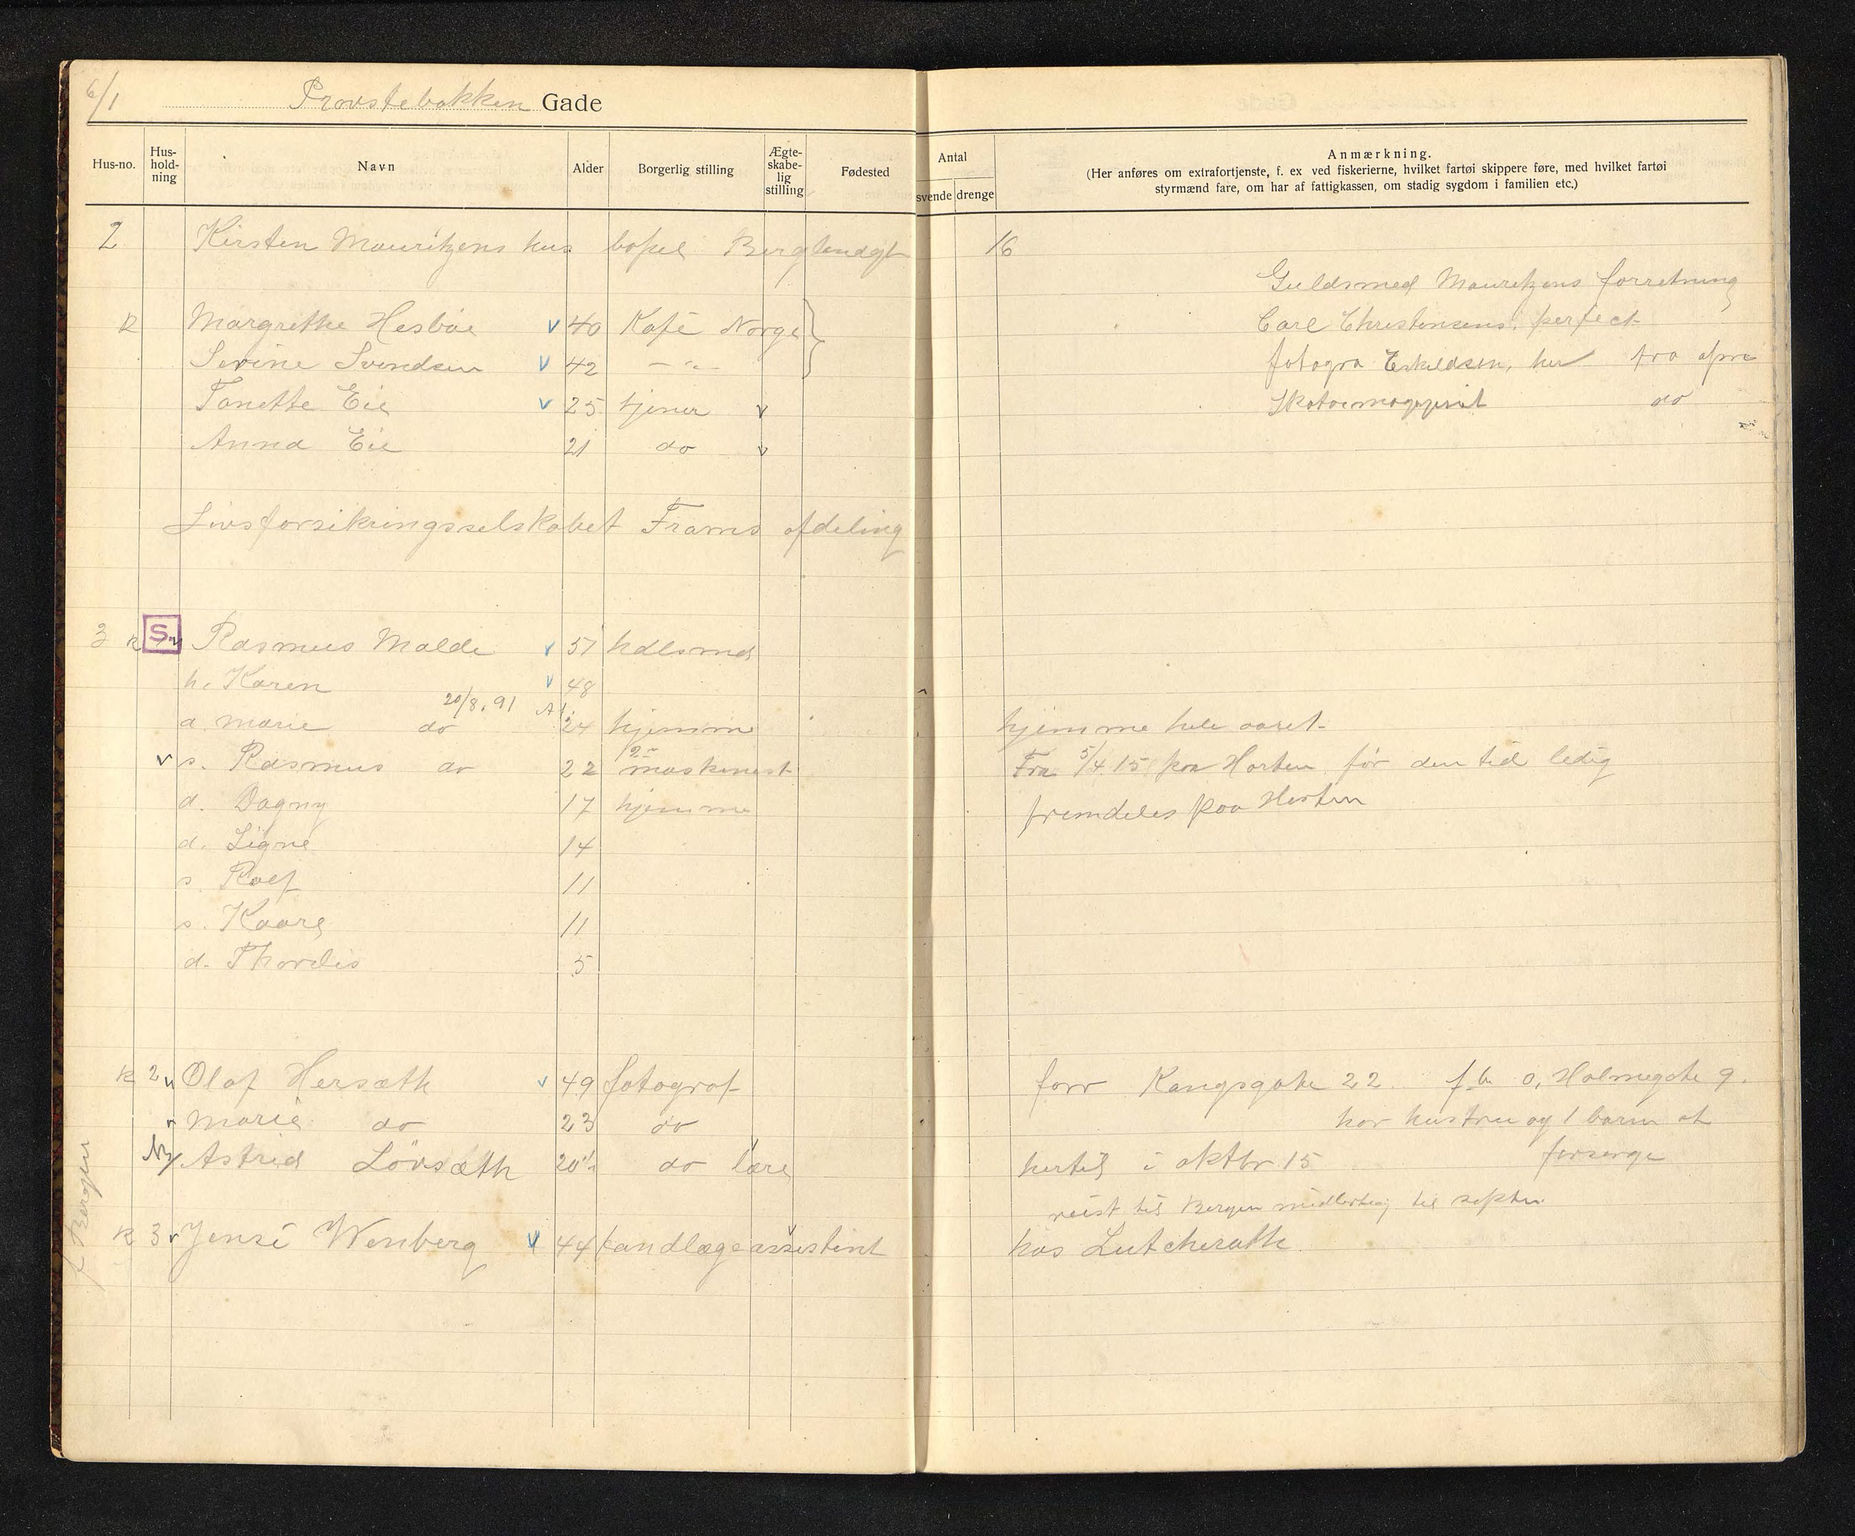 6/1 Provstebakken Gade
Hus-no. Hus-hold-ning Navn Alder Borgerlig stilling Ægte-skabe-lig stilling Fødested
Antal svende drenge
Anmærkning.
(Her anføres om extrafortjenste, f. ex ved fiskerierne, hvilket fartøi skippere føre, med hvilket fartøi
styrmænd fare, om har af fattigkassen, om stadig sygdom i familien etc.)
2 Kirsten Mauritzens hus bopel Berglandgt 16
Guldsmed Mauritzens forretning
R Margrethe Hesbøe v 40 Kafé Norge
Carl Christensens, perfect
Serine Svendsen v 42 — " —
fotogra Eskildsen, her fra
Tonette Eie v 25 tjener v
do
Anna Eie 21 do v
Livsforsikringsselskabet Frams afdeling
3 R S Rasmus Malde v 51 hdlsmd
h. Karen v 48
20/8.91
d Marie do 24 hjemme hjemme hele aaret
v s. Rasmus do 22 2n maskinist Fra 5/4 15 paa Horten før den tid ledig
d. Dagny 17 hjemme fremdeles paa Horten
d. Signe 14
s. Rolf 11
s. Kaare 11
d. Thordis 5
R 2 v Olaf Hersæth v 49 fotograf forr Kongsgate 22 f b o, Holmegate 9.
v Marie do 23 do har hustru og 1 barn at
forsørge
Ny Astrid Lövsæth 20 1/2 do lære hertil i oktbr 15
f Bergen
reist til Bergen midlertidig til septbr
R 3 v Jensé Wenberg v 44 tandlægeassistent hos Lutcherath